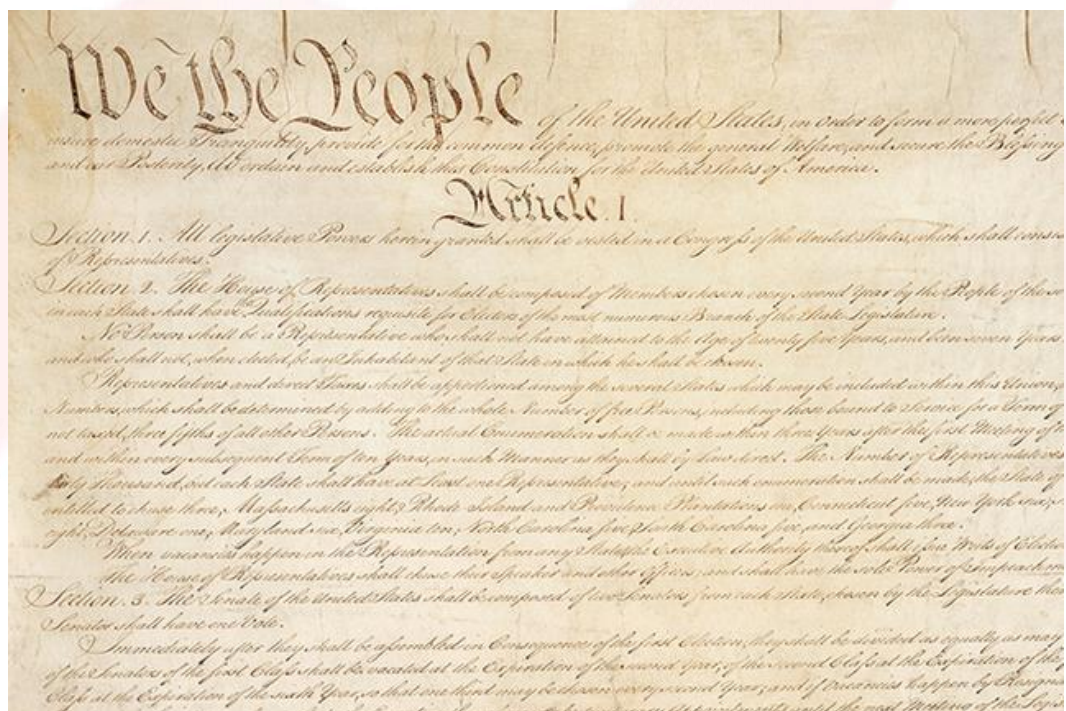 We the People of the United States, in Order to form a more perfect
insure domestic Tranquility, provide for the common defence, promote the general Welfare, and secure the Blessing
and our Posterity, do ordain and establish this Constitution for the United States of America.
Article. I.
Section. 1. All legislative Powers herein granted shall be vested in a Congress of the United States, which shall consis
of Representatives.
Section. 2. The House of Representatives shall be composed of Members chosen every second Year by the People of the se
in each State shall have the Qualifications requisite for Electors of the most numerous Branch of the State Legislature.
No Person shall be a Representative who shall not have attained to the Age of twenty five Years, and been seven Years
and who shall not, when elected, be an Inhabitant of that State in which he shall be chosen.
Representatives and direct Taxes shall be apportioned among the several States which may be included within this Union,
Numbers, which shall be determined by adding to the whole Number of free Persons, including those bound to Service for a Term of
not taxed, three fifths of all other Persons. The actual Enumeration shall be made within three Years after the first Meeting of
and within every subsequent Term of ten Years, in such Manner as they shall by Law direct. The Number of Representatives
thirty Thousand, but each State shall have at Least one Representative; and until such enumeration shall be made, the State of
entitled to chuse three, Massachusetts eight, Rhode Island and Providence Plantations one, Connecticut five, New York six,
eight, Delaware one, Maryland six, Virginia ten, North Carolina five, South Carolina five, and Georgia three.
When vacancies happen in the Representation from any State, the Executive Authority thereof shall issue Writs of Electio
The House of Representatives shall chuse their Speaker and other Officers; and shall have the sole Power of Impeachm
Section. 3. The Senate of the United States shall be composed of two Senators from each State, chosen by the Legislature ther
Senator shall have one Vote.
Immediately after they shall be assembled in Consequence of the first Election, they shall be divided as equally as may
of the Senators of the first Class shall be vacated at the Expiration of the second Year, of the second Class at the Expiration of the
Class at the Expiration of the sixth Year, so that one third may be chosen every second Year; and if Vacancies happen by Resigna
until the next Meeting of the Legis